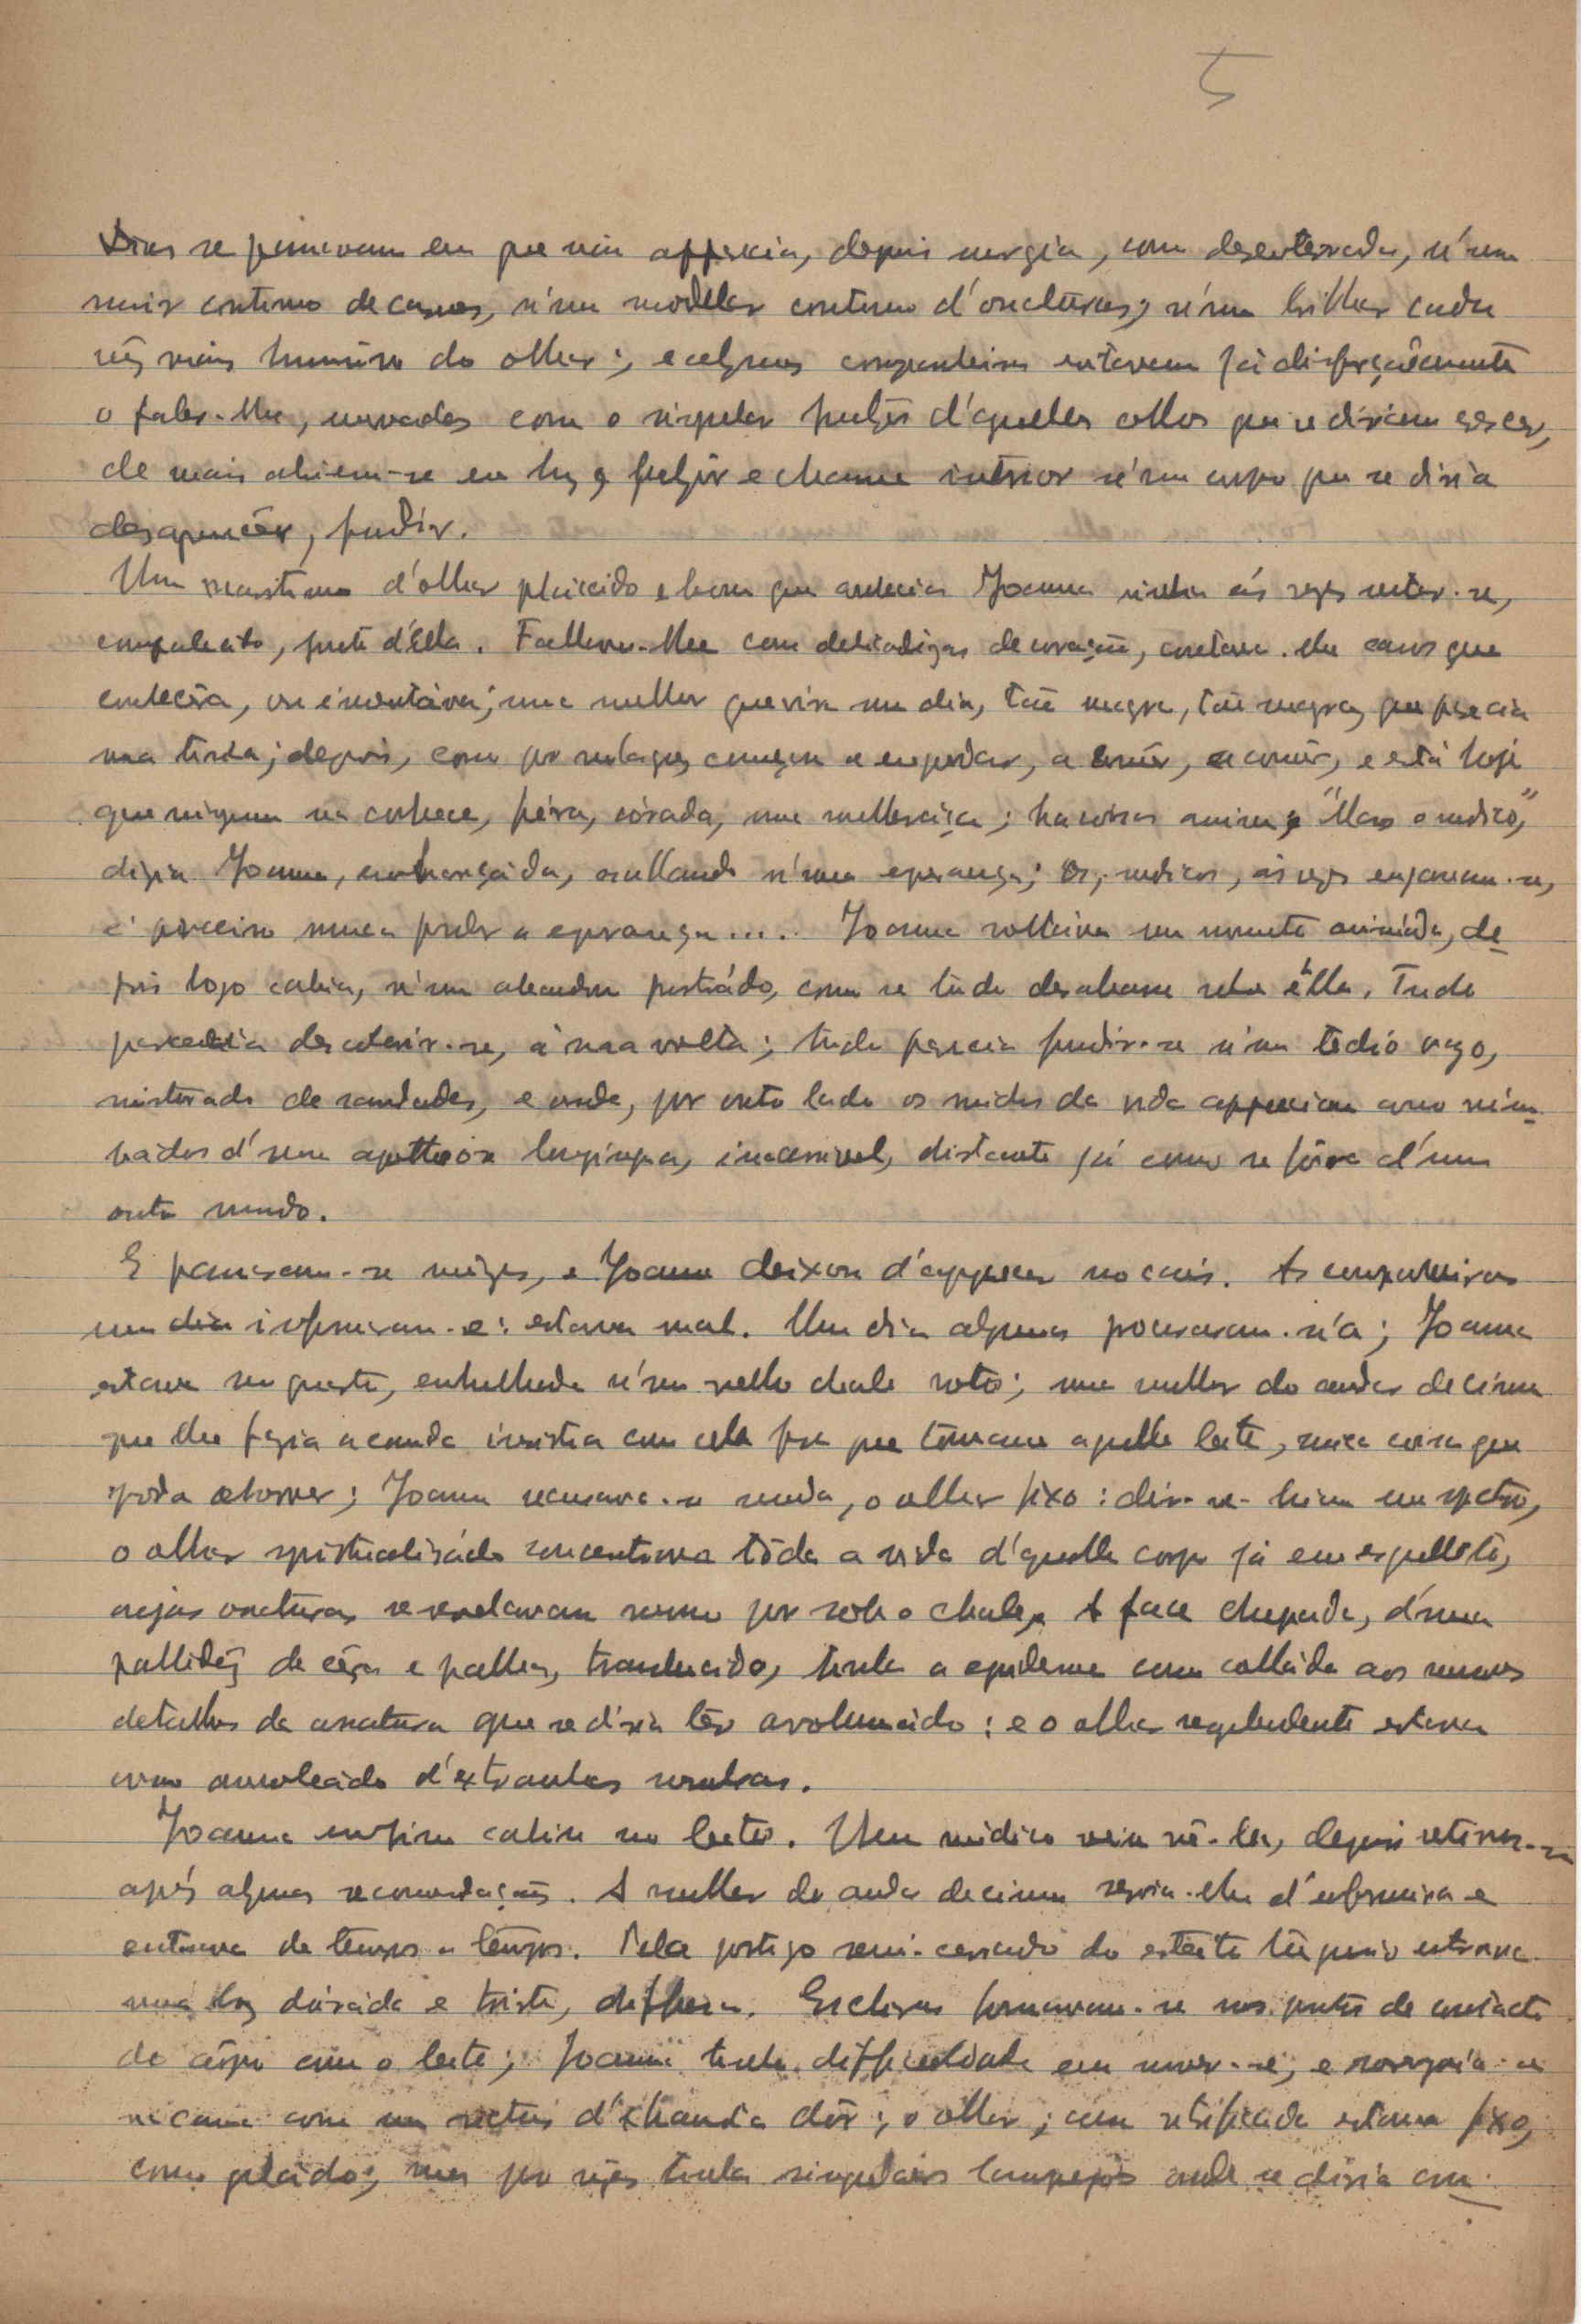 5
Dias se passavam em que não apparecia, depois surgia, como desenterrada, n'um
sair continuo de carnes, n'um modelar continuo d'ossaturas, n'um brilhar cada
vez mais humido do olhar; e algumas companheiras evitavam já disfarçadamente
o fallar-lhe, com o singular fulgor d'aquelles olhos que se diriam crescer,
de mais abrirem-se em luz, fulgir e chamma interior n'um corpo que se diria
desapparecer, fundir.
Um maritimo d'olhar placido e bom que conhecia Joanna vinha ás vezes sentar-se,
, junto d'ella. Fallava-lhe com delicadezas de coração, contava-lhe casos que
conhecera, ou inventára; uma mulher que vira um dia, tão magra, tão magra, que parecia
uma tisica; depois, como por milagre, começou a engordar, a comer, a comer, e está hoje
que ninguem na conhece, féra, córada, uma mulheraça; ha coisas assim; "Mas o medico",
dizia Joanna, esbarrada, n'uma esperança; Os medicos, ás vezes enganam-se,
é preciso nunca perder a esperança.... Joanna voltava um momento animada, de-
pois logo cahia, n'um abandono prostrádo, como se tudo desabasse sobre ella. Tudo
parecia descolorir-se, á sua volta; tudo parecia fundir-se n'um tedio vago,
misturado de saudades, e onde, por outro lado os ruidos da vida appareciam como nim-
bados d'uma apotheose longinqua, inaccessivel, distante já como se fôra d'um
outro mundo.
E passaram-se mezes, e Joanna deixou d'apparecer no caes. As companheiras
um dia informaram-se: estava mal. Um dia algumas procuraram-n'a; Joanna
estava no quarto, embrulhada n'um velho chale roto; uma mulher do andar de cima
que lhe fazia a comida insistia com ella para que tomasse aquelle leite, unica coisa que
podia absorver; Joanna recusava-se muda, o olhar fixo: dir-se-hia um espectro,
o olhar espiritualisádo concentrava tôda a vida d'aquelle corpo já em esqueleto,
cujas ossaturas se revelavam mesmo por sob o chale. A face chupada, d'uma
pallidez de cêra e palha, translucido, tinha a epiderme como collada aos menores
detalhes da ossatura que se diria ter avolumado: e o olhar resplendente estava
como aureolado d'extranhas sombras.
Joanna emfim cahiu no leito. Um médico veio vê-la, depois retirou-se
após algumas recomendações. A mulher do andar de cima servia-lhe d'enfermeira e
entrava de tempos a tempos. Pela postigo semi-cerrado do estreito tugurio entrava
uma luz doirada e triste, diffusa. Escharas formavam-se nos pontos de contacto
do côrpo com o leito; Joanna tinha difficuldade em mover-se, e
na cama com um rictus d'extranha dôr; o olhar, como estava fixo,
como gelado; mas por vezes tinha singulares lampejos onde se diria con-